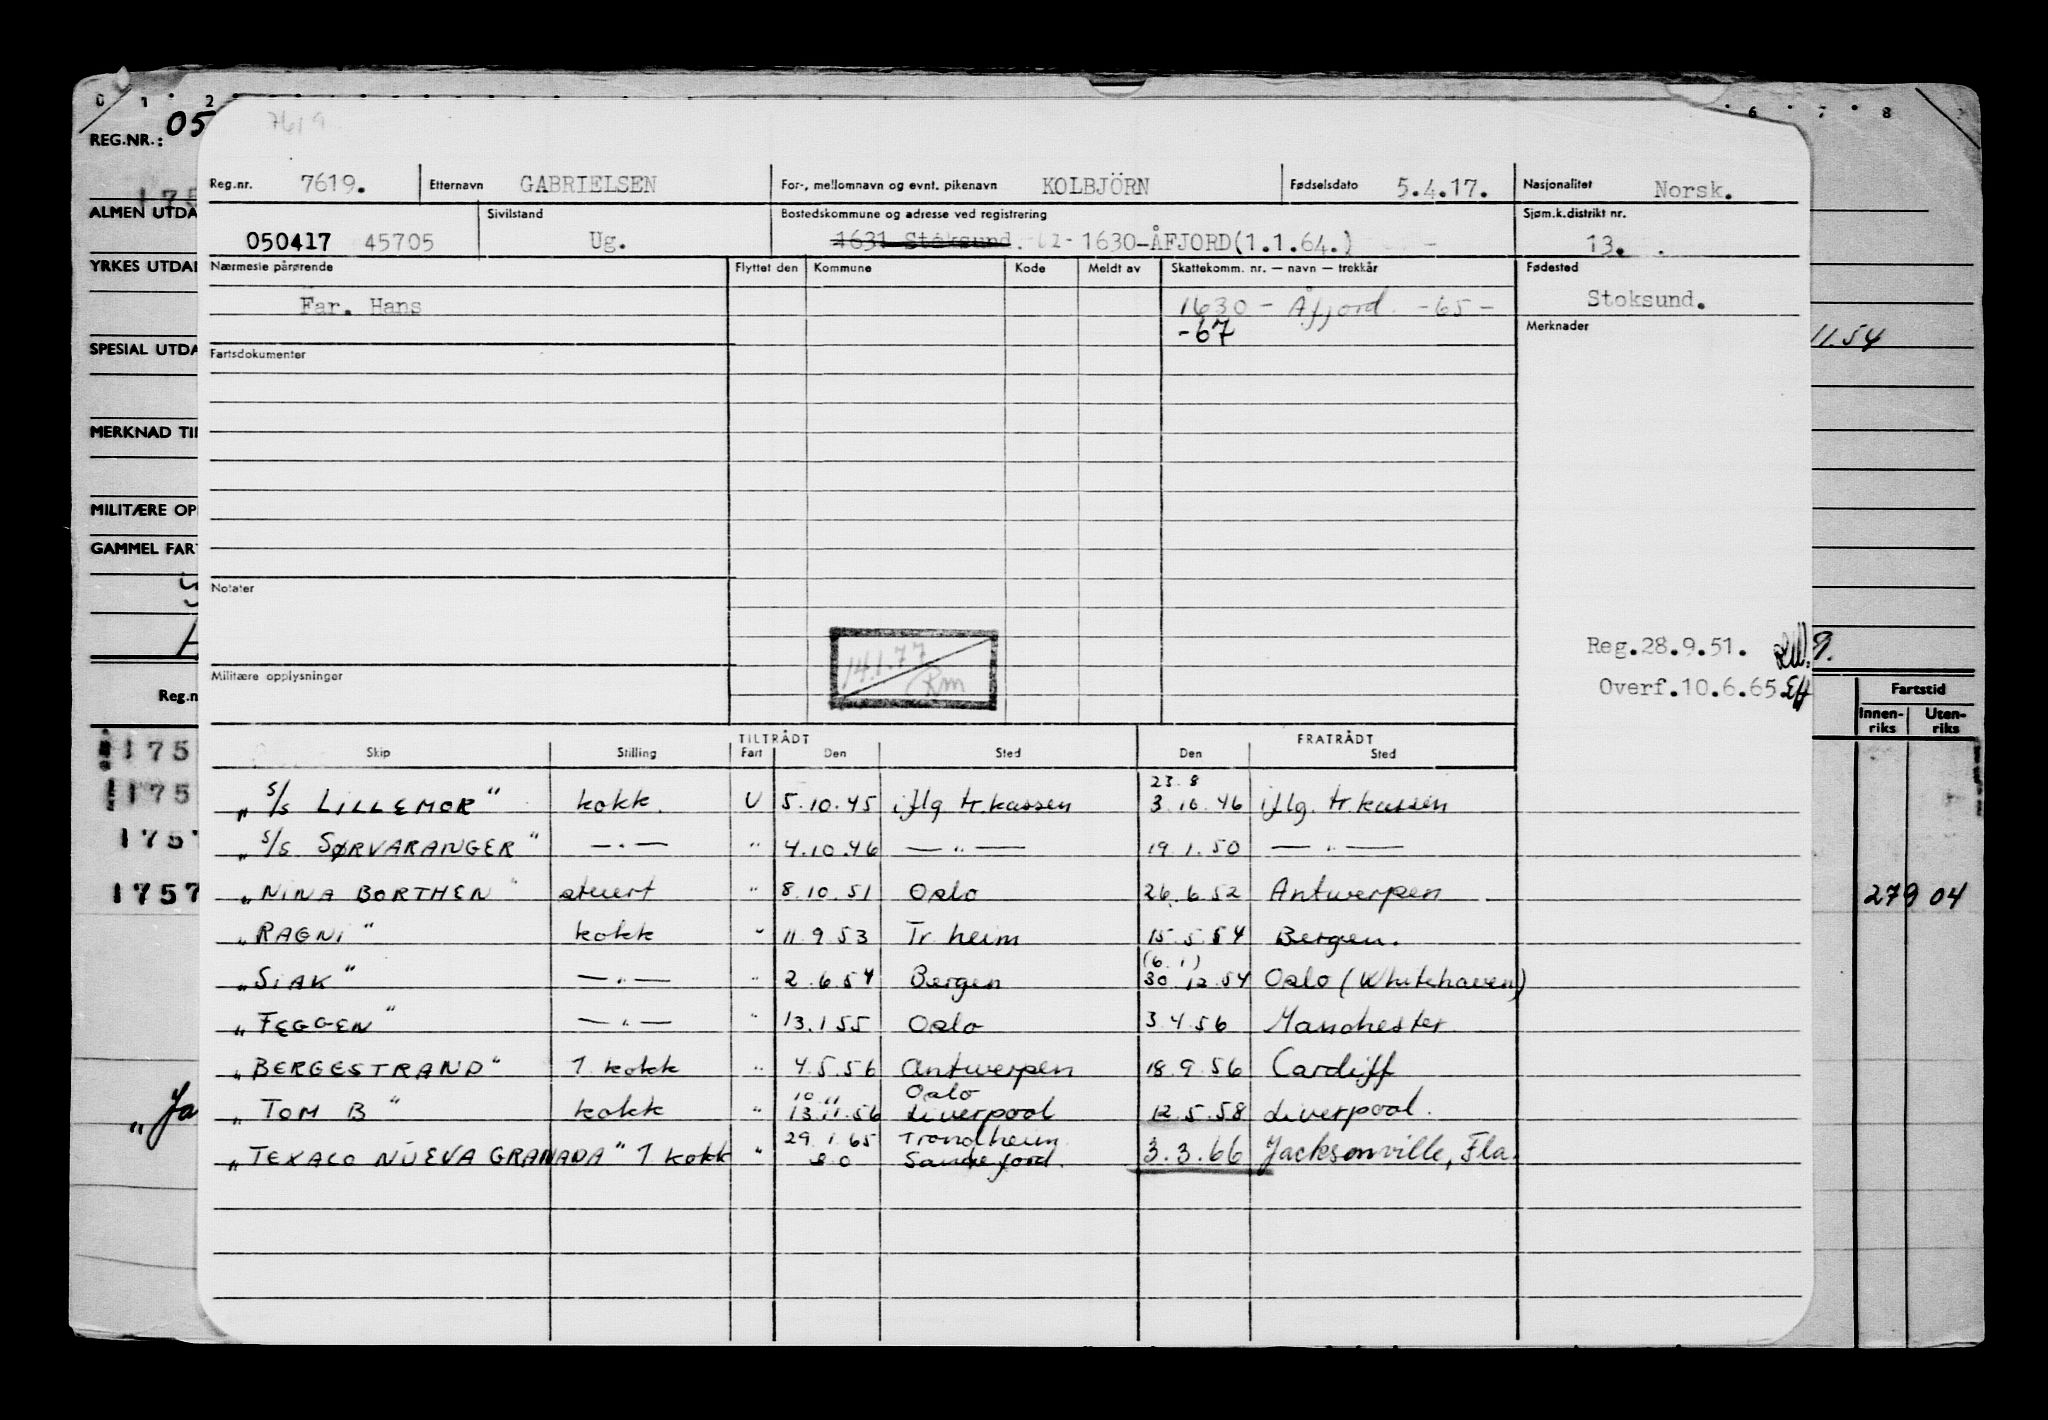 0 1 2 6 7 8
REG.NR.: 05
7619
Reg.nr. 7619. Etternavn GABRIELSEN For-, mellomnavn og evnt. pikenavn KOLBJÖRN Fødselsdato 5.4.17. Nasjonalitet Norsk.
175
ALMEN UTDA
Sivilstand Bostedskommune og adresse ved registrering Sjøm.k.distrikt nr.
050417 45705 Ug. 1631 Stoksund. 1630-ÅFJORD(1.1.64.) 13.
YRKES UTDA
Nærmeste pårørende Flyttet den Kommune Kode Meldt av Skattekomm. nr. — navn — trekkår Fødested
Far. Hans 1630 - Åfjord. -65- Stoksund.
-67 Merknader
11.54
SPESIAL UTDA
Fartsdokumenter
MERKNAD TI
MILITÆRE OP
GAMMEL FAR
Notater
14.1.77
Rm
Reg.28.9.51.
Militære opplysninger Overf.10.6.65.
Reg.n Fartstid
Innen-riks Uten-riks
TILTRÅDT FRATRÅDT
Skip Stilling Fart Den Sted Den Sted
175
23.8
„ s/s LILLEMOR" kokk. U 5.10.45 iflg tr.kassen 3.10.46 iflg. tr.kassen
175
„ s/s SØRVARANGER" —„— " 4.10.46 —„— 19.1.50 —„—
175
„NINA BORTHEN" stuert " 8.10.51 Oslo 26.6.52 Antwerpen
1757 279 04
„RAGNI" kokk " 11.9.53 Tr.heim 15.5.54 Bergen.
(6.1)
„SIAK" —„— " 2.6.54 Bergen 30.12.54 Oslo (Whitehaven)
„FEGGEN" —„— " 13.1.55 Oslo 3.4.56 Manchester
„BERGESTRAND" 1 kokk " 4.5.56 Antwerpen 18.9.56 Cardiff
10 " Oslo
„TOM B" kokk " 13.11.56 Liverpool 12.5.58 Liverpool.
„Ja
29.1.65 Trondheim
„TEXACO NUEVA GRANADA" 1 kokk " Sandefjord. 3.3.66 Jacksonville, Fla.